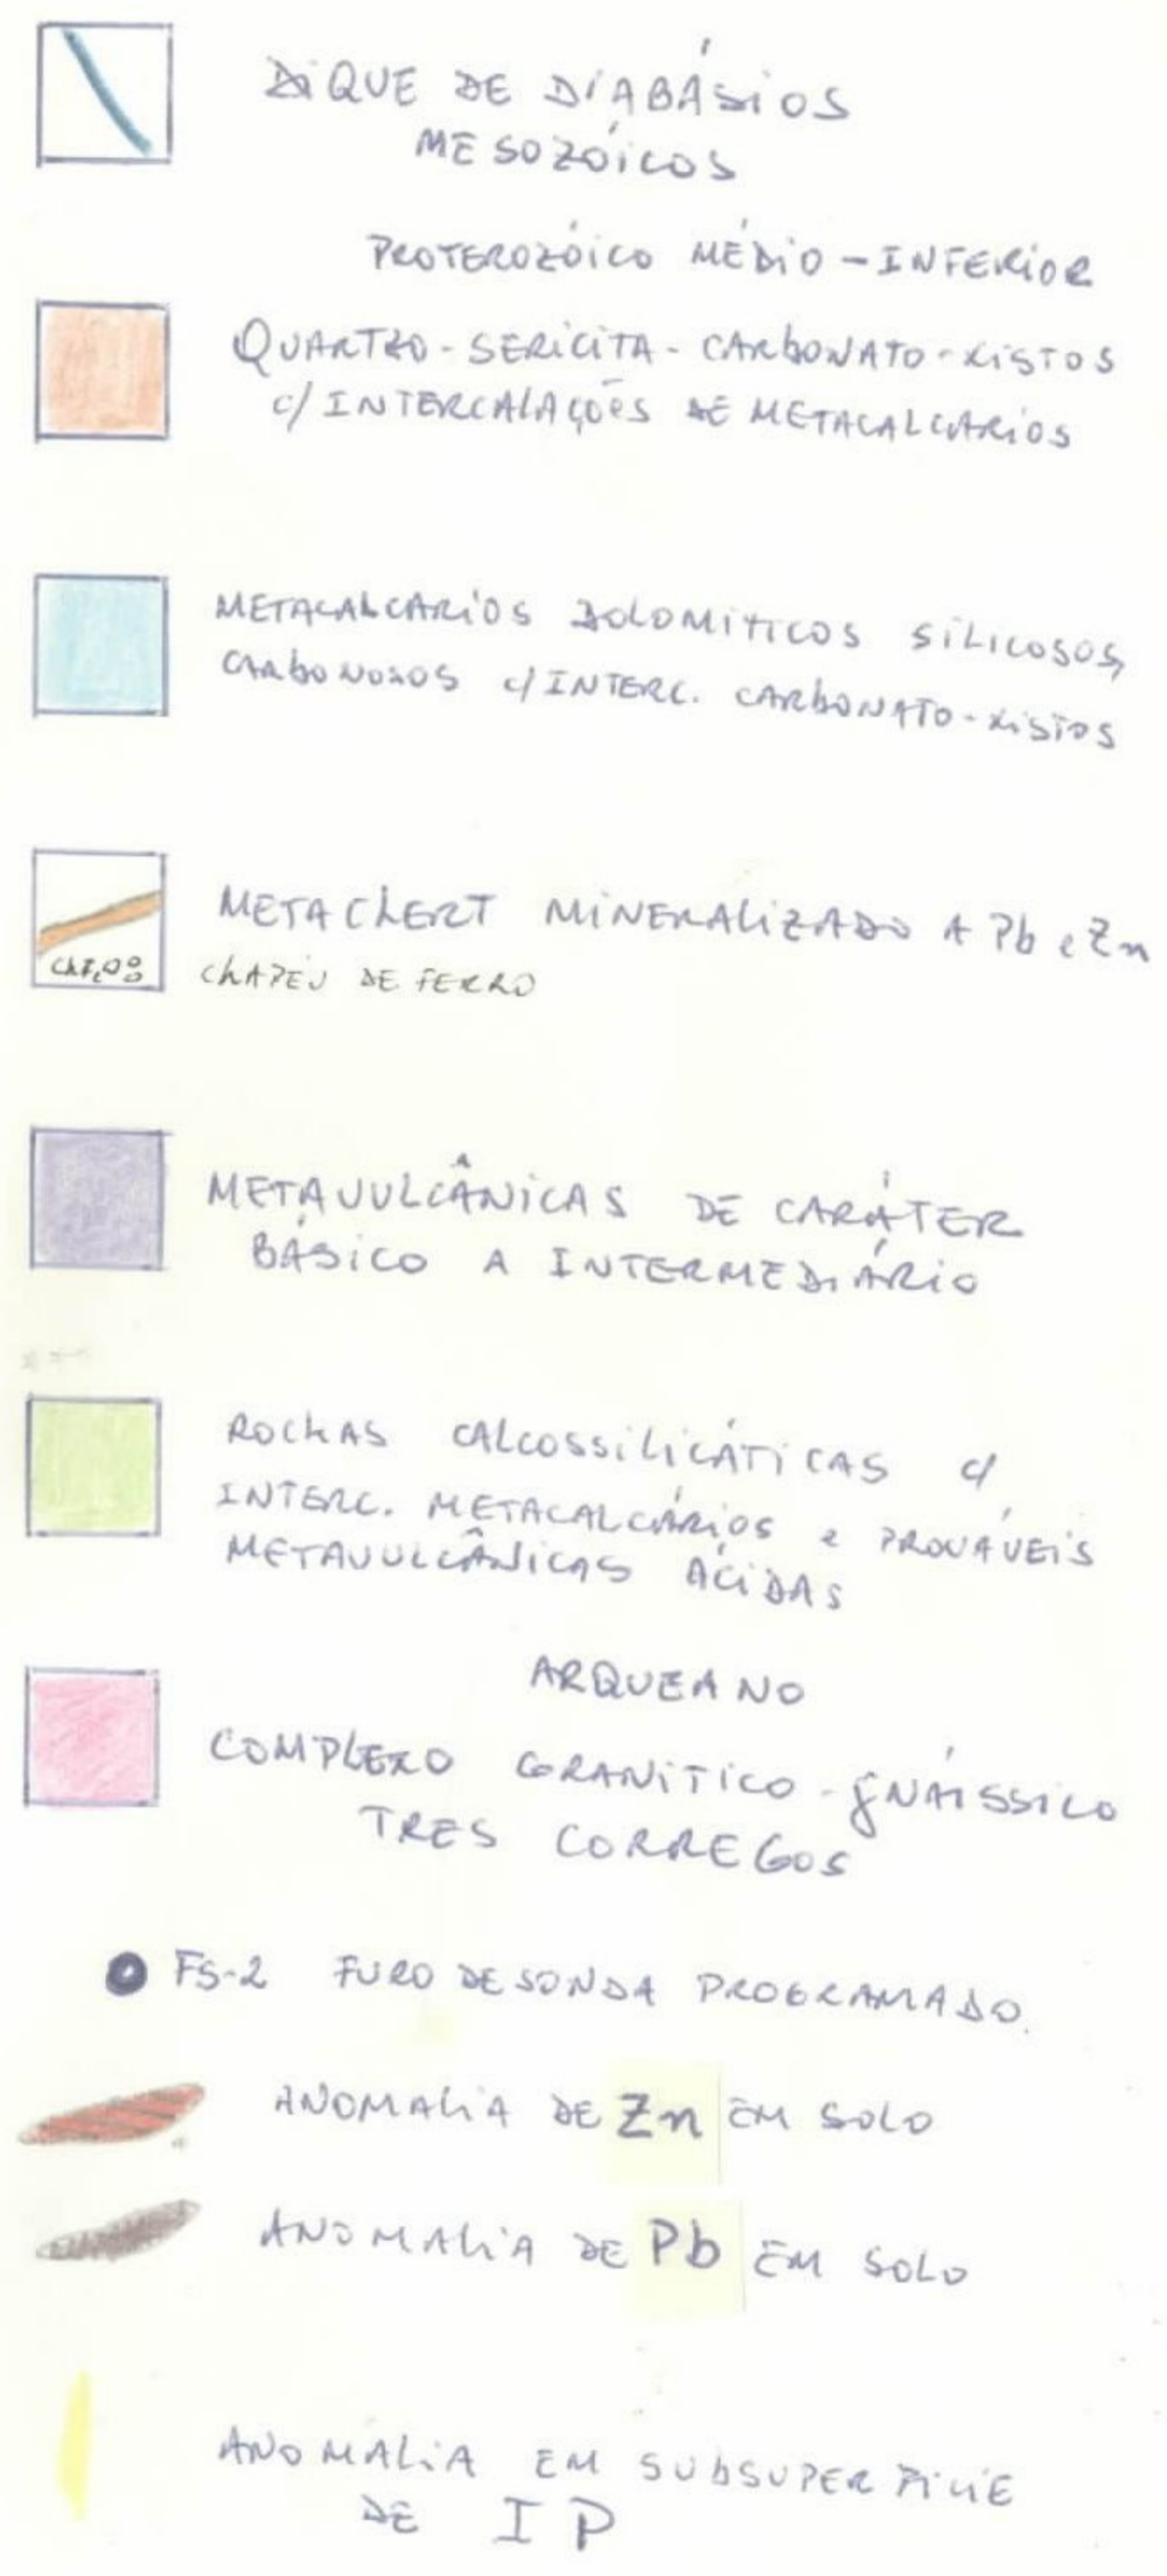 DIQUE DE DIABÁSIOS
MESOZÓICOS
PROTEROZÓICO MÉDIO - INFERIOR
QUARTZO - SERICITA - CARBONATO - XISTOS
c/ INTERCALAÇÕES DE METACALCARIOS
METACALCARIOS DOLOMITICOS SILICOSOS,
CARBONOSOS c/ INTERC. CARBONATO - XISTOS
METACHERT MINERALIZADO A Pb e Zn
CHAPÉU DE FERRO
METAVULCÂNICAS DE CARÁTER
BÁSICO A INTERMEDIÁRIO
ROCHAS CALCOSSILICÁTICAS c/
INTERC. METACALCÁRIOS e PROVÁVEIS
METAVULCÂNICAS ÁCIDAS
ARQUEANO
COMPLEXO GRANITICO - GNÁISSICO
TRES CORREGOS
FS-2 FURO DE SONDA PROGRAMADO.
ANOMALIA DE Zn EM SOLO
ANOMALIA DE Pb EM SOLO
ANOMALIA EM SUBSUPERFICIE
DE IP